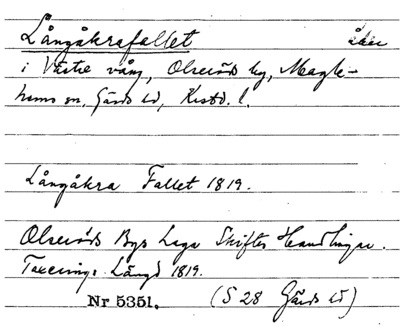 Långåkrafallet åker
i Västre vång, Olseröds by, Magle-
hems sn, Gärds hd, Kristd. l.
Långåkra Fallet 1819.
Olseröds Bys Laga Skiftes Handlingar.
Taxerings Längd 1819.
Nr 5351. (S 28 Gärds hd)